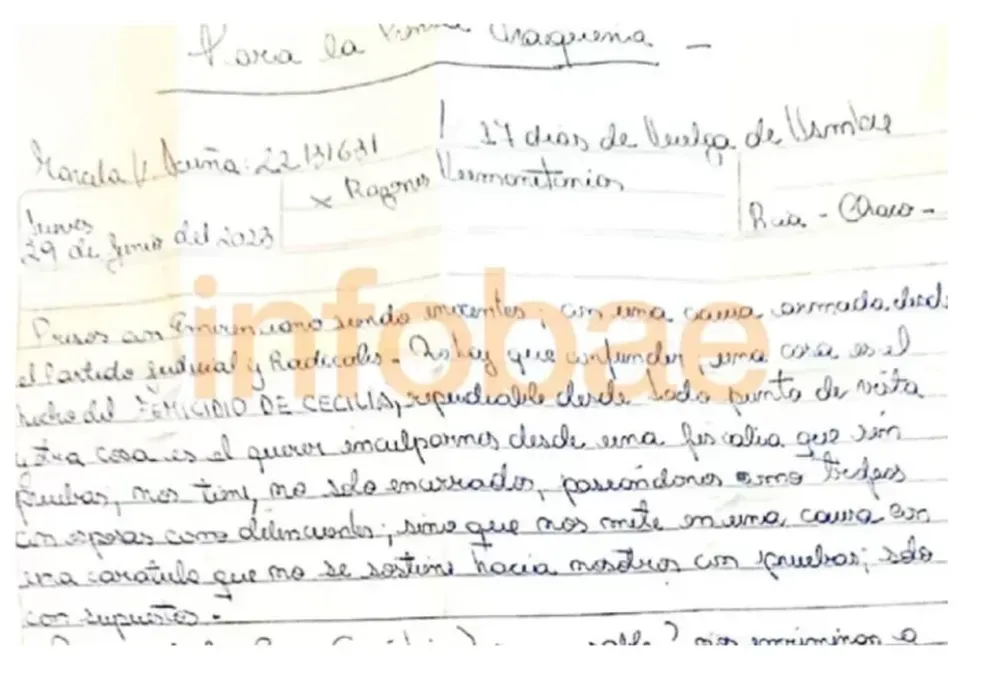 Para la Prensa Chaqueña -
17 días de Huelga de Hambre
Marcela V. Acuña: 22131631
x Razones Humanitarias
Jueves
29 de Junio del 2023
Rcia - Chaco -
infobae
Presos con Emerenciano siendo inocentes; con una causa armada desde
el Partido Judicial y Radicales - No hay que confundir, una cosa es el
hecho del FEMICIDIO DE CECILIA, repudiable desde todo punto de vista
y otra cosa es el querer inculparnos desde una fiscalia que sin
pruebas, nos tiene, no solo encerrados, paseándonos como trofeos
con esposas como delincuentes; sino que nos mete en una causa con
una caratula que no se sostiene hacia nosotros con pruebas; solo
con supuestos.
nos incriminan a